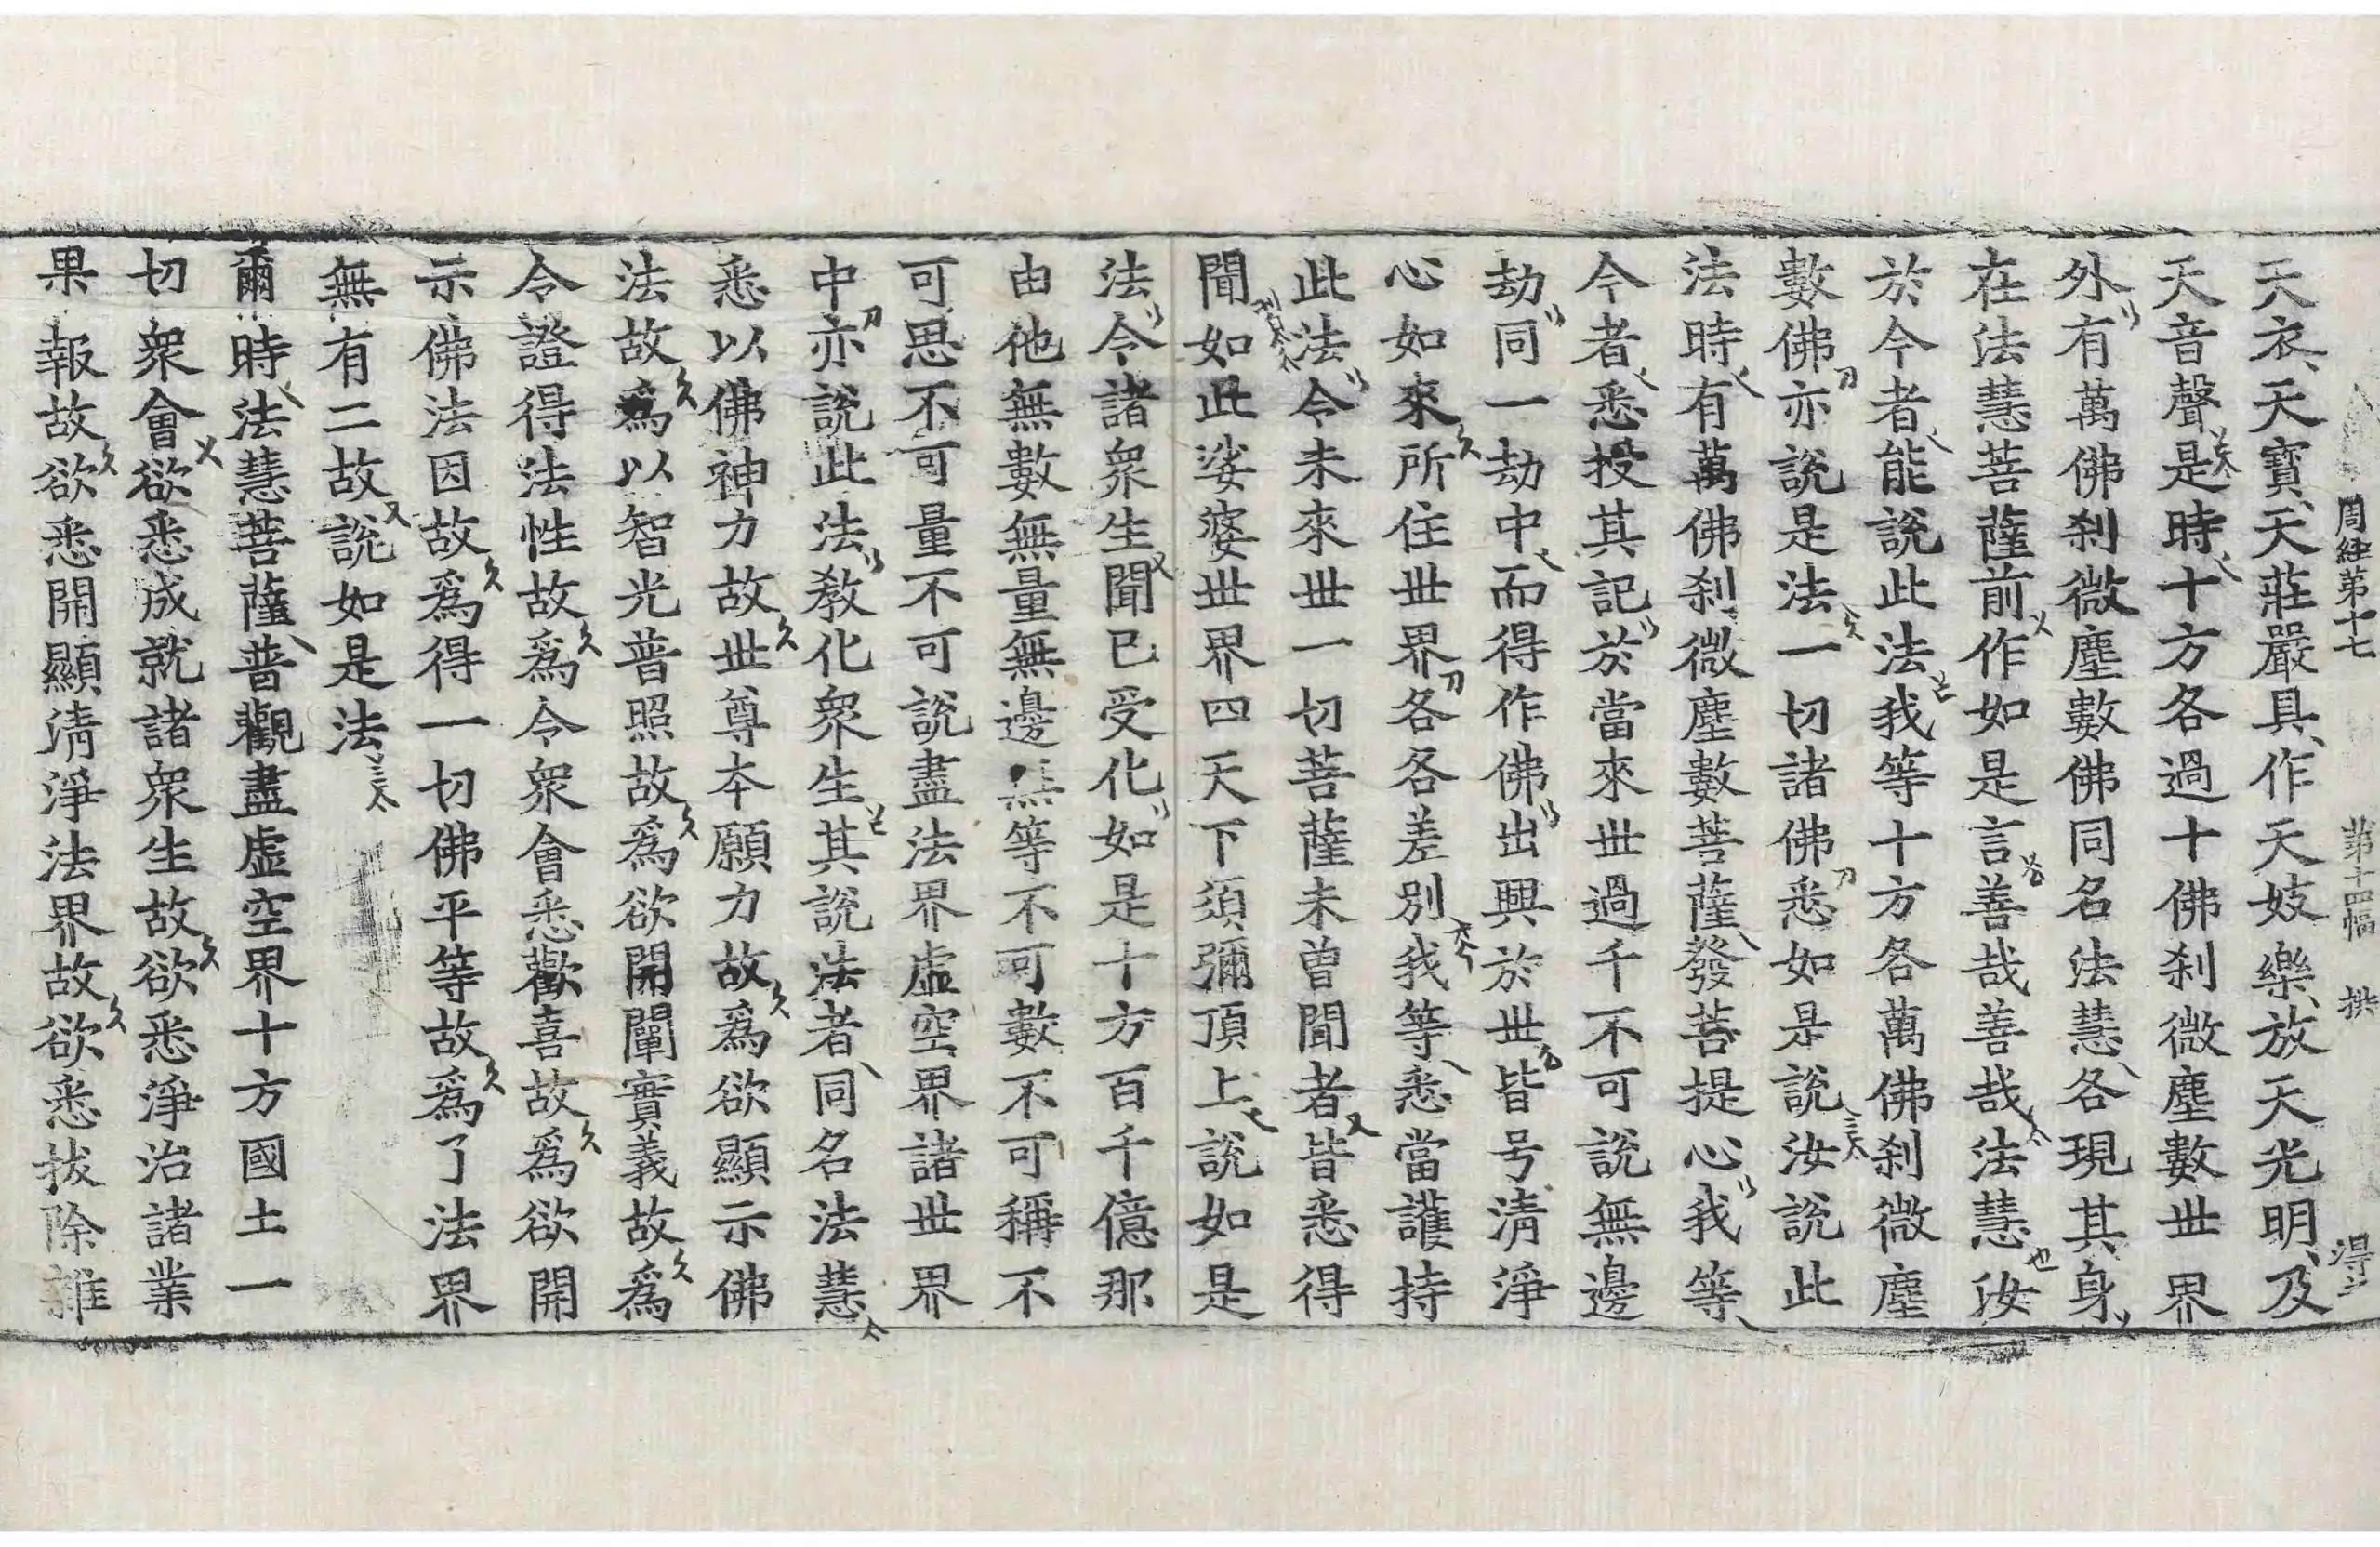 周經第十七 第十四幅 拱 得
天衣天寶天莊嚴具作天妓樂放天光明及
天音聲是時十方各過十佛刹微塵數世界
外有萬佛刹微塵數佛同名法慧各現其身
在法慧菩薩前作如是言善哉善哉法慧汝
於今者能說此法我等十方各萬佛刹微塵
數佛亦說是法一切諸佛悉如是說汝說此
法時有萬佛刹微塵數菩薩發菩提心我等
今者悉授其記於當來世過千不可說無邊
劫同一劫中而得作佛出興於世皆号淸淨
心如來所住世界各各差別我等悉當護持
此法令未來世一切菩薩未曾聞者皆悉得
聞如此娑婆世界四天下須彌頂上說如是
法令諸衆生聞已受化如是十方百千億那
由他無數無量無邊無等不可數不可稱不
可思不可量不可說盡法界虛空界諸世界
中亦說此法敎化衆生其說法者同名法慧
悉以佛神力故世尊本願力故爲欲顯示佛
法故爲以智光普照故爲欲開闡實義故爲
令證得法性故爲令衆會悉歡喜故爲欲開
示佛法因故爲得一切佛平等故爲了法界
無有二故說如是法
爾時法慧菩薩普觀盡虛空界十方國土一
切衆會欲悉成就諸衆生故欲悉淨治諸業
果報故欲悉開顯淸淨法界故欲悉拔除雜